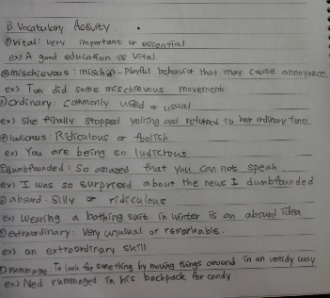 B. Vocabulary Activity
① Vital: Very important or essential
ex) A good education is vital
② mischievous: mischin - playful behavior that may cause annoyance.
ex) Tom did some mischievous movement
③ Ordinary: Commonly used or usual
ex) She finally stopped yelling and returned to her ordinary tone.
④ ludicrous: Ridiculous or foolish
ex) You are being so ludicrous
⑤ dumbfounded: So amazed that you can not speak
ex) I was so surprised about the news I dumbfounded
⑥ absurd: Silly or ridiculous
ex) Wearing a bathing suit in winter is an absurd idea
⑦ extraordinary: Very unusual or remarkable.
ex) an extraordinary skill
To look for something by moving things around in an untidy way
ex) Ned rummaged in his backpack for candy